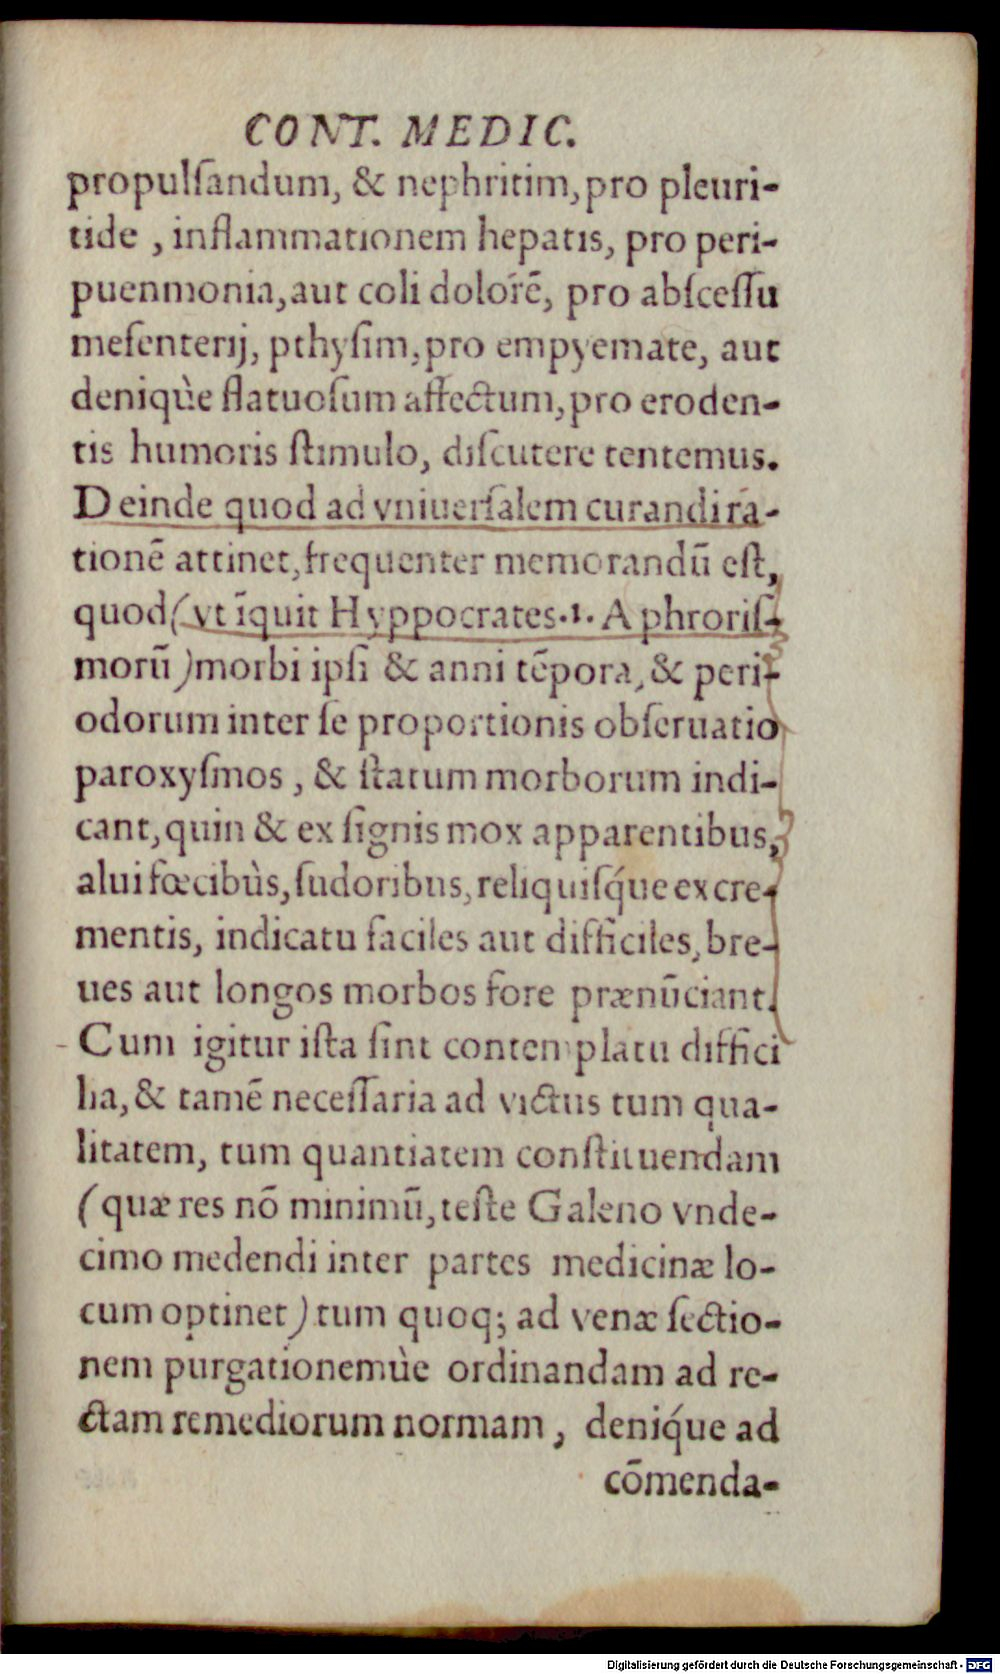 CONT. MEDIC.
propulſandum, & nephritim, pro pleuri-
tide, inflammationem hepatis, pro peri-
puenmonia, aut coli dolorē, pro abſceſſu
meſenterij, pthyſim, pro empyemate, aut
deniquè flatuoſum affectum, pro eroden-
tis humoris ſtimulo, diſcutere tentemus.
Deinde quod ad vniuerſalem curandi ra-
tionē attinet, frequenter memorandū eſt,
quod (vt īquit Hyppocrates .1. Aphroriſ-
morū) morbi ipſi & anni tēpora, & peri-
odorum inter ſe proportionis obſeruatio
paroxyſmos, & ſtatum morborum indi-
cant, quin & ex ſignis mox apparentibus,
alui fœcibùs, ſudoribus, reliquiſq́ue excre-
mentis, indicatu faciles aut difficiles, bre-
ues aut longos morbos fore prænūciant.
Cum igitur iſta ſint contemplatu diffici
lia, & tamē neceſſaria ad victus tum qua-
litatem, tum quantiatem conſtituendam
(quæ res nō minimū, teſte Galeno vnde-
cimo medendi inter partes medicinæ lo-
cum optinet) tum quoq; ad venæ ſectio-
nem purgationemùe ordinandam ad re-
ctam remediorum normam, deniq́ue ad
cōmenda-
Digitalisierung gefördert durch die Deutsche Forschungsgemeinschaft - DFG